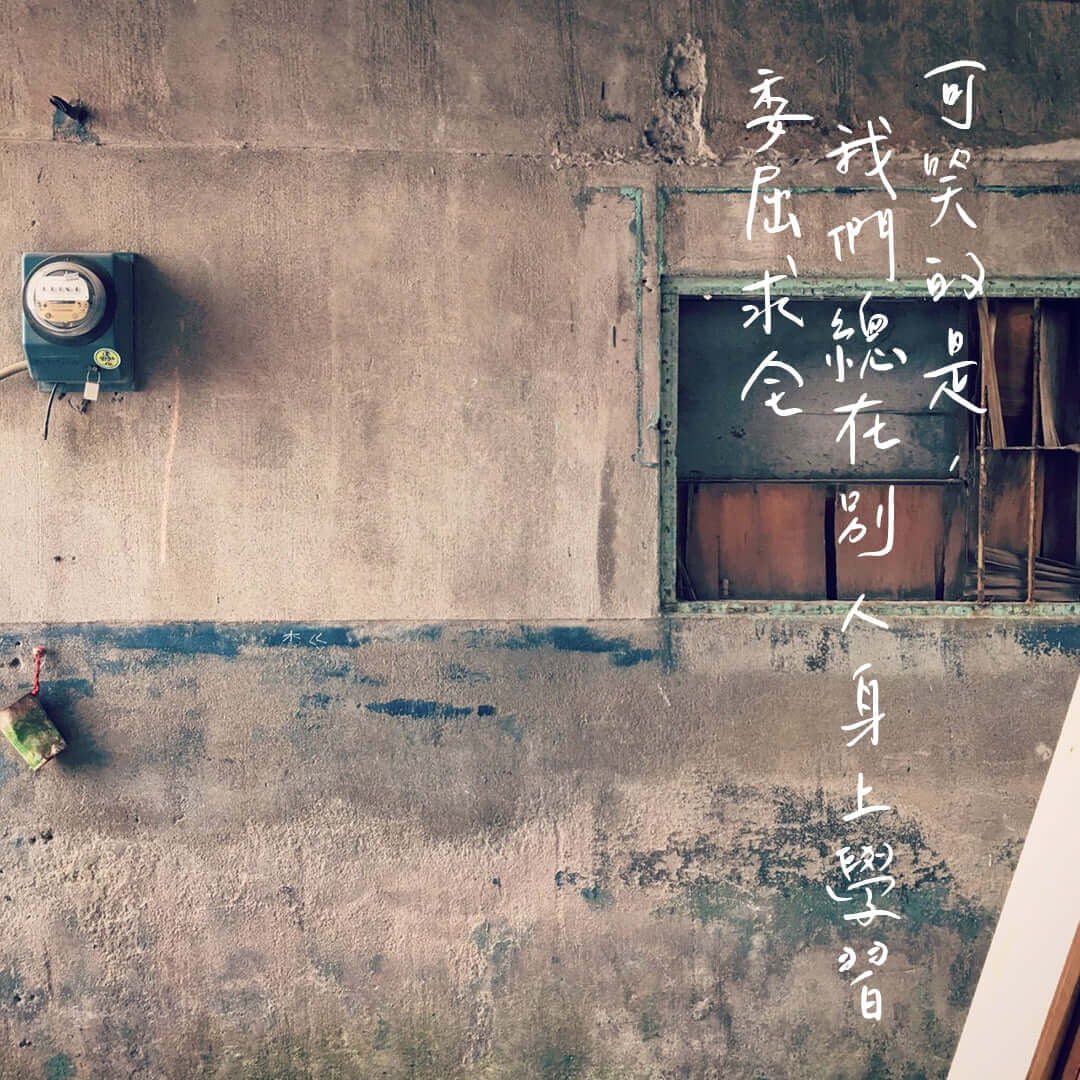 可哭的是，
我們總在別人身上學習
委屈求全